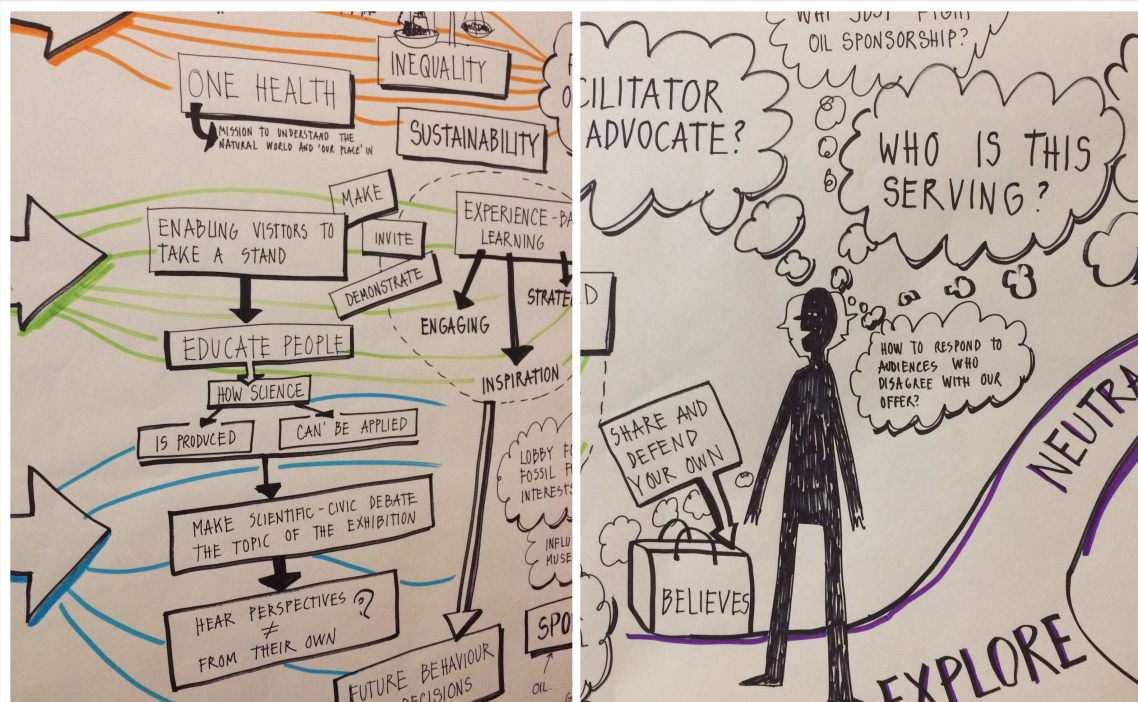 INEQUALITY
ONE HEALTH
MISSION TO UNDERSTAND THE
NATURAL WORLD AND 'OUR PLACE' IN
SUSTAINABILITY
MAKE
ENABLING VISITORS TO
TAKE A STAND
INVITE
DEMONSTRATE
EXPERIENCE-BA
LEARNING
STRATE
ENGAGING
INSPIRATION
EDUCATE PEOPLE
HOW SCIENCE
IS PRODUCED
CAN' BE APPLIED
MAKE SCIENTIFIC-CIVIC DEBATE
THE TOPIC OF THE EXHIBITION
HEAR PERSPECTIVES ?
≠
FROM THEIR OWN
LOBBY FO
FOSSIL F
INTERESTS
INFLU
MUSE
SPO
OIL.
FUTURE BEHAVIOUR
DECISIONS
WHY JUST FIGHT
OIL SPONSORSHIP?
CILITATOR
ADVOCATE?
WHO IS THIS
SERVING?
HOW TO RESPOND TO
AUDIENCES WHO
DISAGREE WITH OUR
OFFER?
D
SHARE AND
DEFEND
YOUR OWN
BELIEVES
NEUTRA
EXPLORE